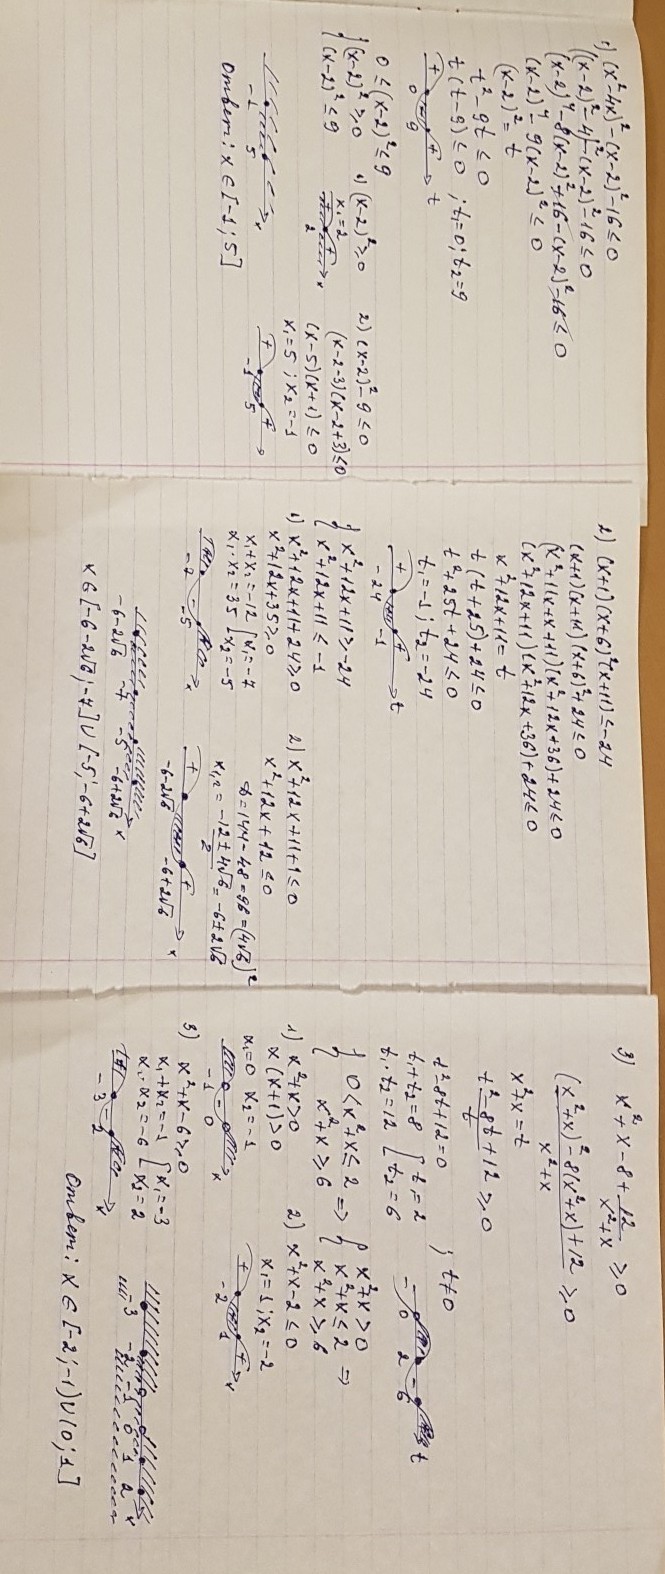 1) (x²-4x)²-(x-2)²-16≤0
((x-2)²-4)²-(x-2)²-16≤0
(x-2)⁴-8(x-2)²+16-(x-2)²-16≤0
(x-2)⁴-9(x-2)²≤0
(x-2)²=t
t²-9t≤0
t(t-9)≤0 ; t₁=0; t₂=9
+ - + t
0 9
0≤(x-2)²≤9
{ (x-2)²≥0
(x-2)²≤9
1) (x-2)²≥0
x₁=2
+ + x
2
2) (x-2)²-9≤0
(x-2-3)(x-2+3)≤0
(x-5)(x+1)≤0
x₁=5 ; x₂=-1
+ - + x
-1 5
-1 5 x
Ответ: x∈[-1; 5]
2) (x+1)(x+6)²(x+11)≤-24
(x+1)(x+11)(x+6)²+24≤0
(x²+11x+x+11)(x²+12x+36)+24≤0
(x²+12x+11)(x²+12x+36)+24≤0
x²+12x+11=t
t(t+25)+24≤0
t²+25t+24≤0
t₁=-1; t₂=-24
+ - + t
-24 -1
{ x²+12x+11≥-24
x²+12x+11≤-1
1) x²+12x+11+24≥0
x²+12x+35≥0
x₁+x₂=-12 [ x₁=-7
x₁·x₂=35 [ x₂=-5
+ - + x
-7 -5
2) x²+12x+11+1≤0
x²+12x+12≤0
D=144-48=96=(4√6)²
x₁,₂=(-12±4√6)/2=-6±2√6
+ - + x
-6-2√6 -6+2√6
-6-2√6 -7 -5 -6+2√6 x
x∈[-6-2√6; -7]∪[-5; -6+2√6]
3) x²+x-8+12/(x²+x)≥0
((x²+x)²-8(x²+x)+12)/(x²+x)≥0
x²+x=t
(t²-8t+12)/t≥0
t²-8t+12=0 ; t≠0
t₁+t₂=8 [ t₁=2
t₁·t₂=12 [ t₂=6
- + - + t
0 2 6
{ 0<x²+x≤2 =>
x²+x≥6
{ x²+x>0
x²+x≤2 =>
x²+x≥6
1) x²+x>0
x(x+1)>0
x₁=0 x₂=-1
+ - + x
-1 0
2) x²+x-2≤0
x₁=1; x₂=-2
+ - + x
-2 1
3) x²+x-6≥0
x₁+x₂=-1 [ x₁=-3
x₁·x₂=-6 [ x₂=2
+ - + x
-3 2
-3 -2 -1 0 1 2 x
Ответ: x∈[-2; -1)∪(0; 1]